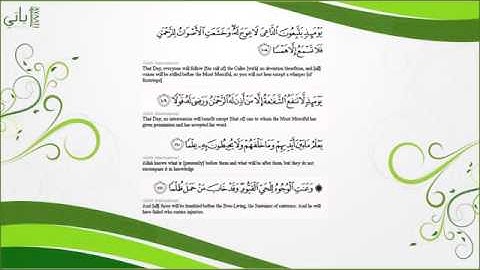 يَوْمَئِذٍ يَتَّبِعُونَ الدَّاعِيَ لَا عِوَجَ لَهُ وَخَشَعَتِ الْأَصْوَاتُ لِلرَّحْمَٰنِ
فَلَا تَسْمَعُ إِلَّا هَمْسًا
Sahih International
That Day, everyone will follow [the call of] the Caller [with] no deviation therefrom, and [all]
voices will be stilled before the Most Merciful, so you will not hear except a whisper [of
footsteps].
يَوْمَئِذٍ لَّا تَنفَعُ الشَّفَاعَةُ إِلَّا مَنْ أَذِنَ لَهُ الرَّحْمَٰنُ وَرَضِيَ لَهُ قَوْلًا
Sahih International
That Day, no intercession will benefit except [that of] one to whom the Most Merciful has
given permission and has accepted his word.
يَعْلَمُ مَا بَيْنَ أَيْدِيهِمْ وَمَا خَلْفَهُمْ وَلَا يُحِيطُونَ بِهِ عِلْمًا
Sahih International
Allah knows what is [presently] before them and what will be after them, but they do not
encompass it in knowledge.
وَعَنَتِ الْوُجُوهُ لِلْحَيِّ الْقَيُّومِ وَقَدْ خَابَ مَنْ حَمَلَ ظُلْمًا
Sahih International
And [all] faces will be humbled before the Ever-Living, the Sustainer of existence. And he will
have failed who carries injustice.